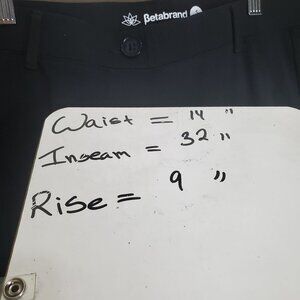 Betabrand
Waist = 14 "
Inseam = 32 "
Rise = 9 "